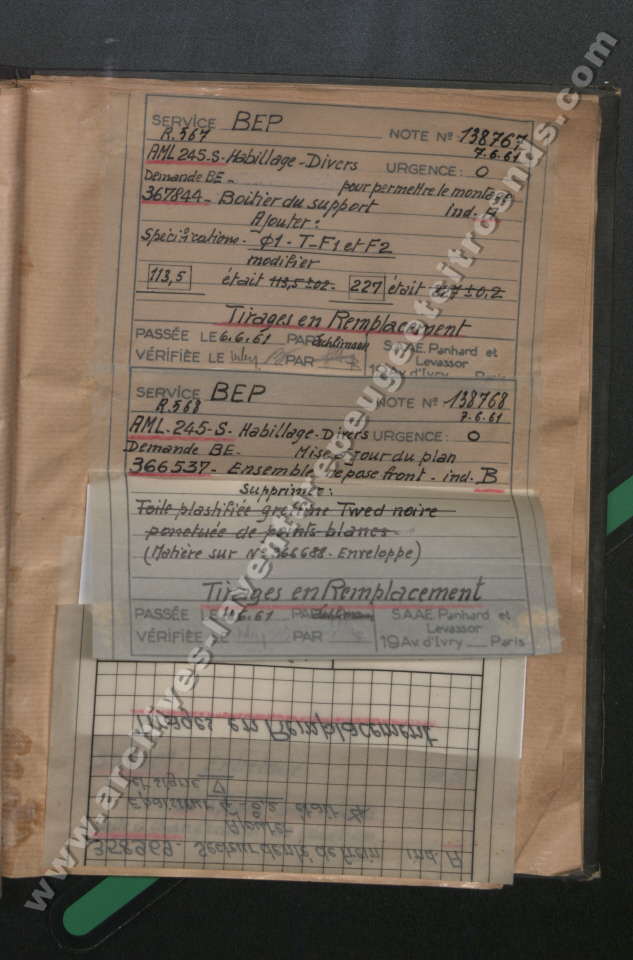 SERVICE BEP NOTE No 138767
R.567 7.6.61
AML 245-S- Habillage-Divers URGENCE: O
Demande BE - pour permettre le montage
367844- Boîtier du support ind.
Ajouter:
Spécifications- φ1-T-F1 et F2
modifier
113,5 était 113,5±02- 227 était 227±0,2
Tirages en Remplacement
PASSÉE LE 6.6.61 PAR SAAE. Panhard et
Levassor
VÉRIFIÉE LE PAR 19 Av. d'Ivry Paris
SERVICE BEP NOTE No 138768
R.568 7.6.61
AML-245-S- Habillage-Divers URGENCE: O
Demande BE. Mise à jour du plan
366537- Ensemble repose front - ind. B
Supprimer:
Toile plastifiée Twed noire
ponctuée de points blancs
(Matière sur No 366688-Enveloppe)
Tirages en Remplacement
PASSÉE LE 6.61 PAR SAAE Panhard et
Levassor
VÉRIFIÉE LE PAR 19 Av. d'Ivry Paris
Tirages en Remplacement
signe ∇
Epaisseur était
Ajouter
358969- Secteur denté de frein ind. A
www.archives-laventurepeugeotcitroends.com